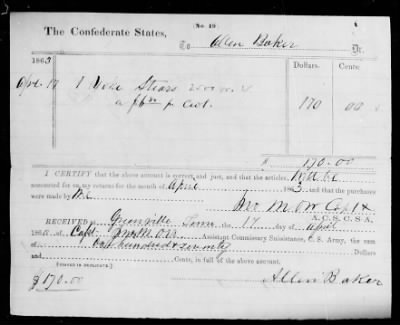 (No. 19.)
The Confederate States,
To Allen Baker Dr.
1863 Dollars. Cents.
Apr. 17 1 Yoke Stears
170 00
$ 170.00
I CERTIFY that the above account is correct and just, and that the articles, will be
accounted for on my returns for the month of April 1863, and that the purchases
were made by
A. C. S. C. S. A.
RECEIVED at Greenville Tenn 17 day of April
186 Capt Assistant Commissary Subsistance, C. S. Army, the sum
of One hundred & seventy Dollars
and Cents, in full of the above account.
[SIGNED IN DUPLICATE.]
$170.00 Allen Baker